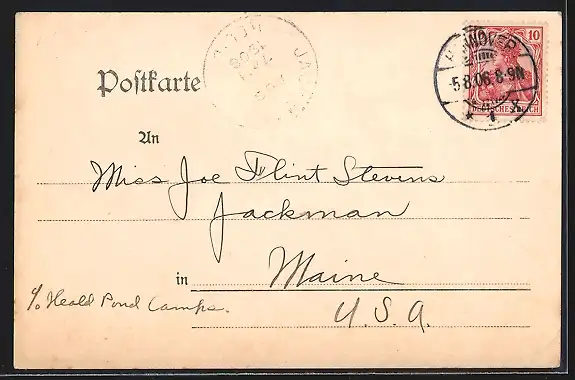 Postkarte
HANNOVER
5.8.06.8-9N
* 1 x
10
DEUTSCHES REICH
An
Miss Joe Flint Stevens
Jackman
in Maine
c/o Heald Pond Camps.
U.S.A.